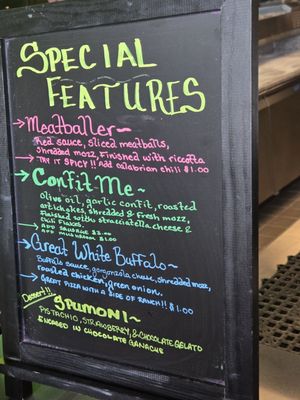 SPECIAL
FEATURES
→Meatballer~
Red sauce, sliced meatballs,
shredded mozz, finished with riccotta
→TRY IT SPICY!! Add calabrian chili $1.00
→Confit Me~
Olive oil, garlic confit, roasted
artichokes, shredded & fresh mozz,
finished with stracciatella cheese &
chili flakes
→ADD SAUSAGE $3.00
→ADD MUSHROOM $1.00
→Great White Buffalo~
Buffalo sauce, gorgonzola cheese, shredded mozz,
roasted chicken, green onion.
→GREAT PIZZA WITH A SIDE OF RANCH!! $1.00
Dessert!!
SPUMONI~
PISTACHIO, STRAWBERRY, & CHOCOLATE GELATO
ENCASED IN CHOCOLATE GANACHE